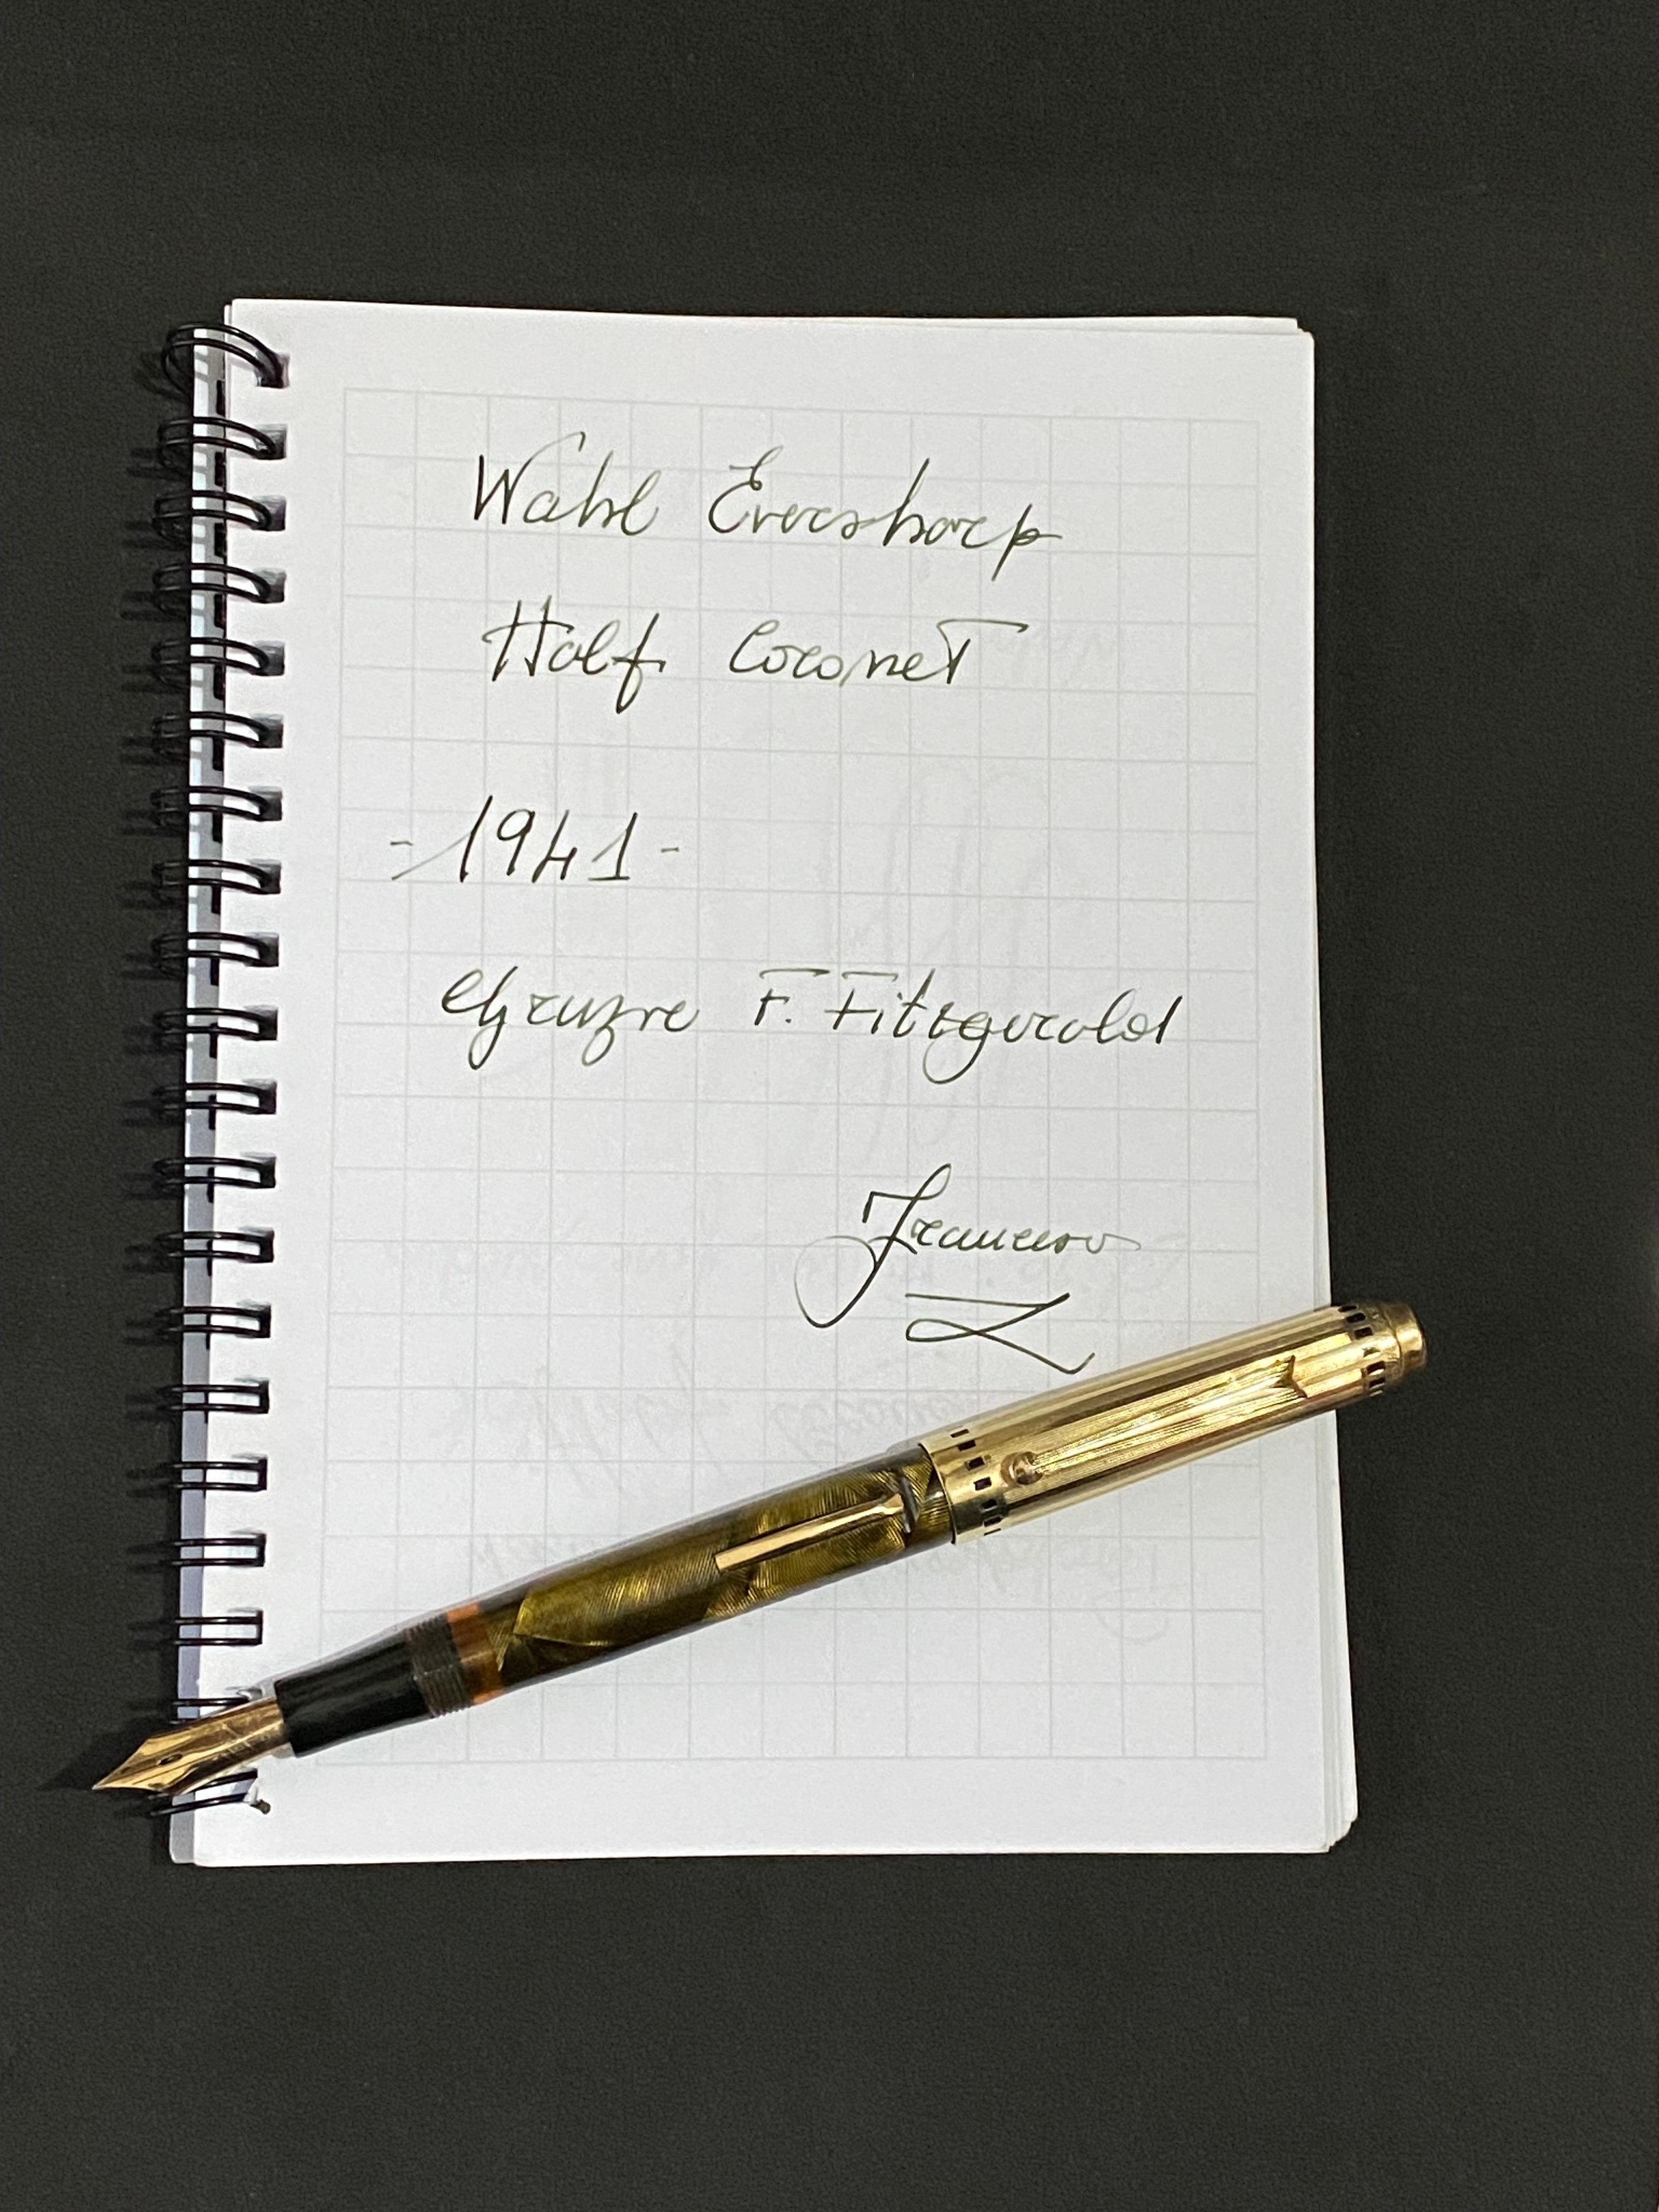 Wahl Eversharp
Half Coronet
-1941-
F. Fitzgerald
Francesco